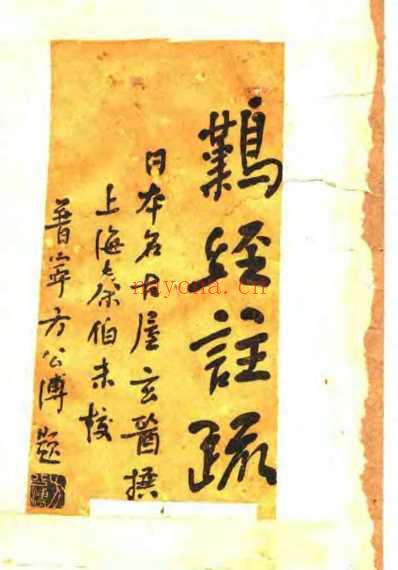 難經註疏
日本名古屋玄醫撰
上海秦伯未校
普寧方公溥題
nayona.cn